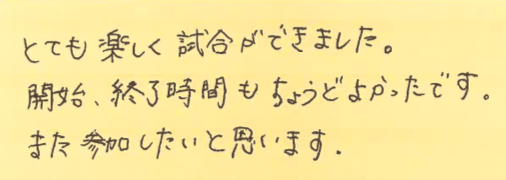 とても楽しく試合ができました。
開始、終了時間もちょうどよかったです。
また参加したいと思います.